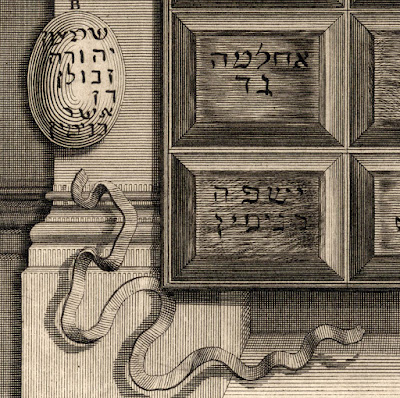 B
שמעון
יהודה
זבולן
דן
אשר
אחלמה
גד
ישפה
בנימין